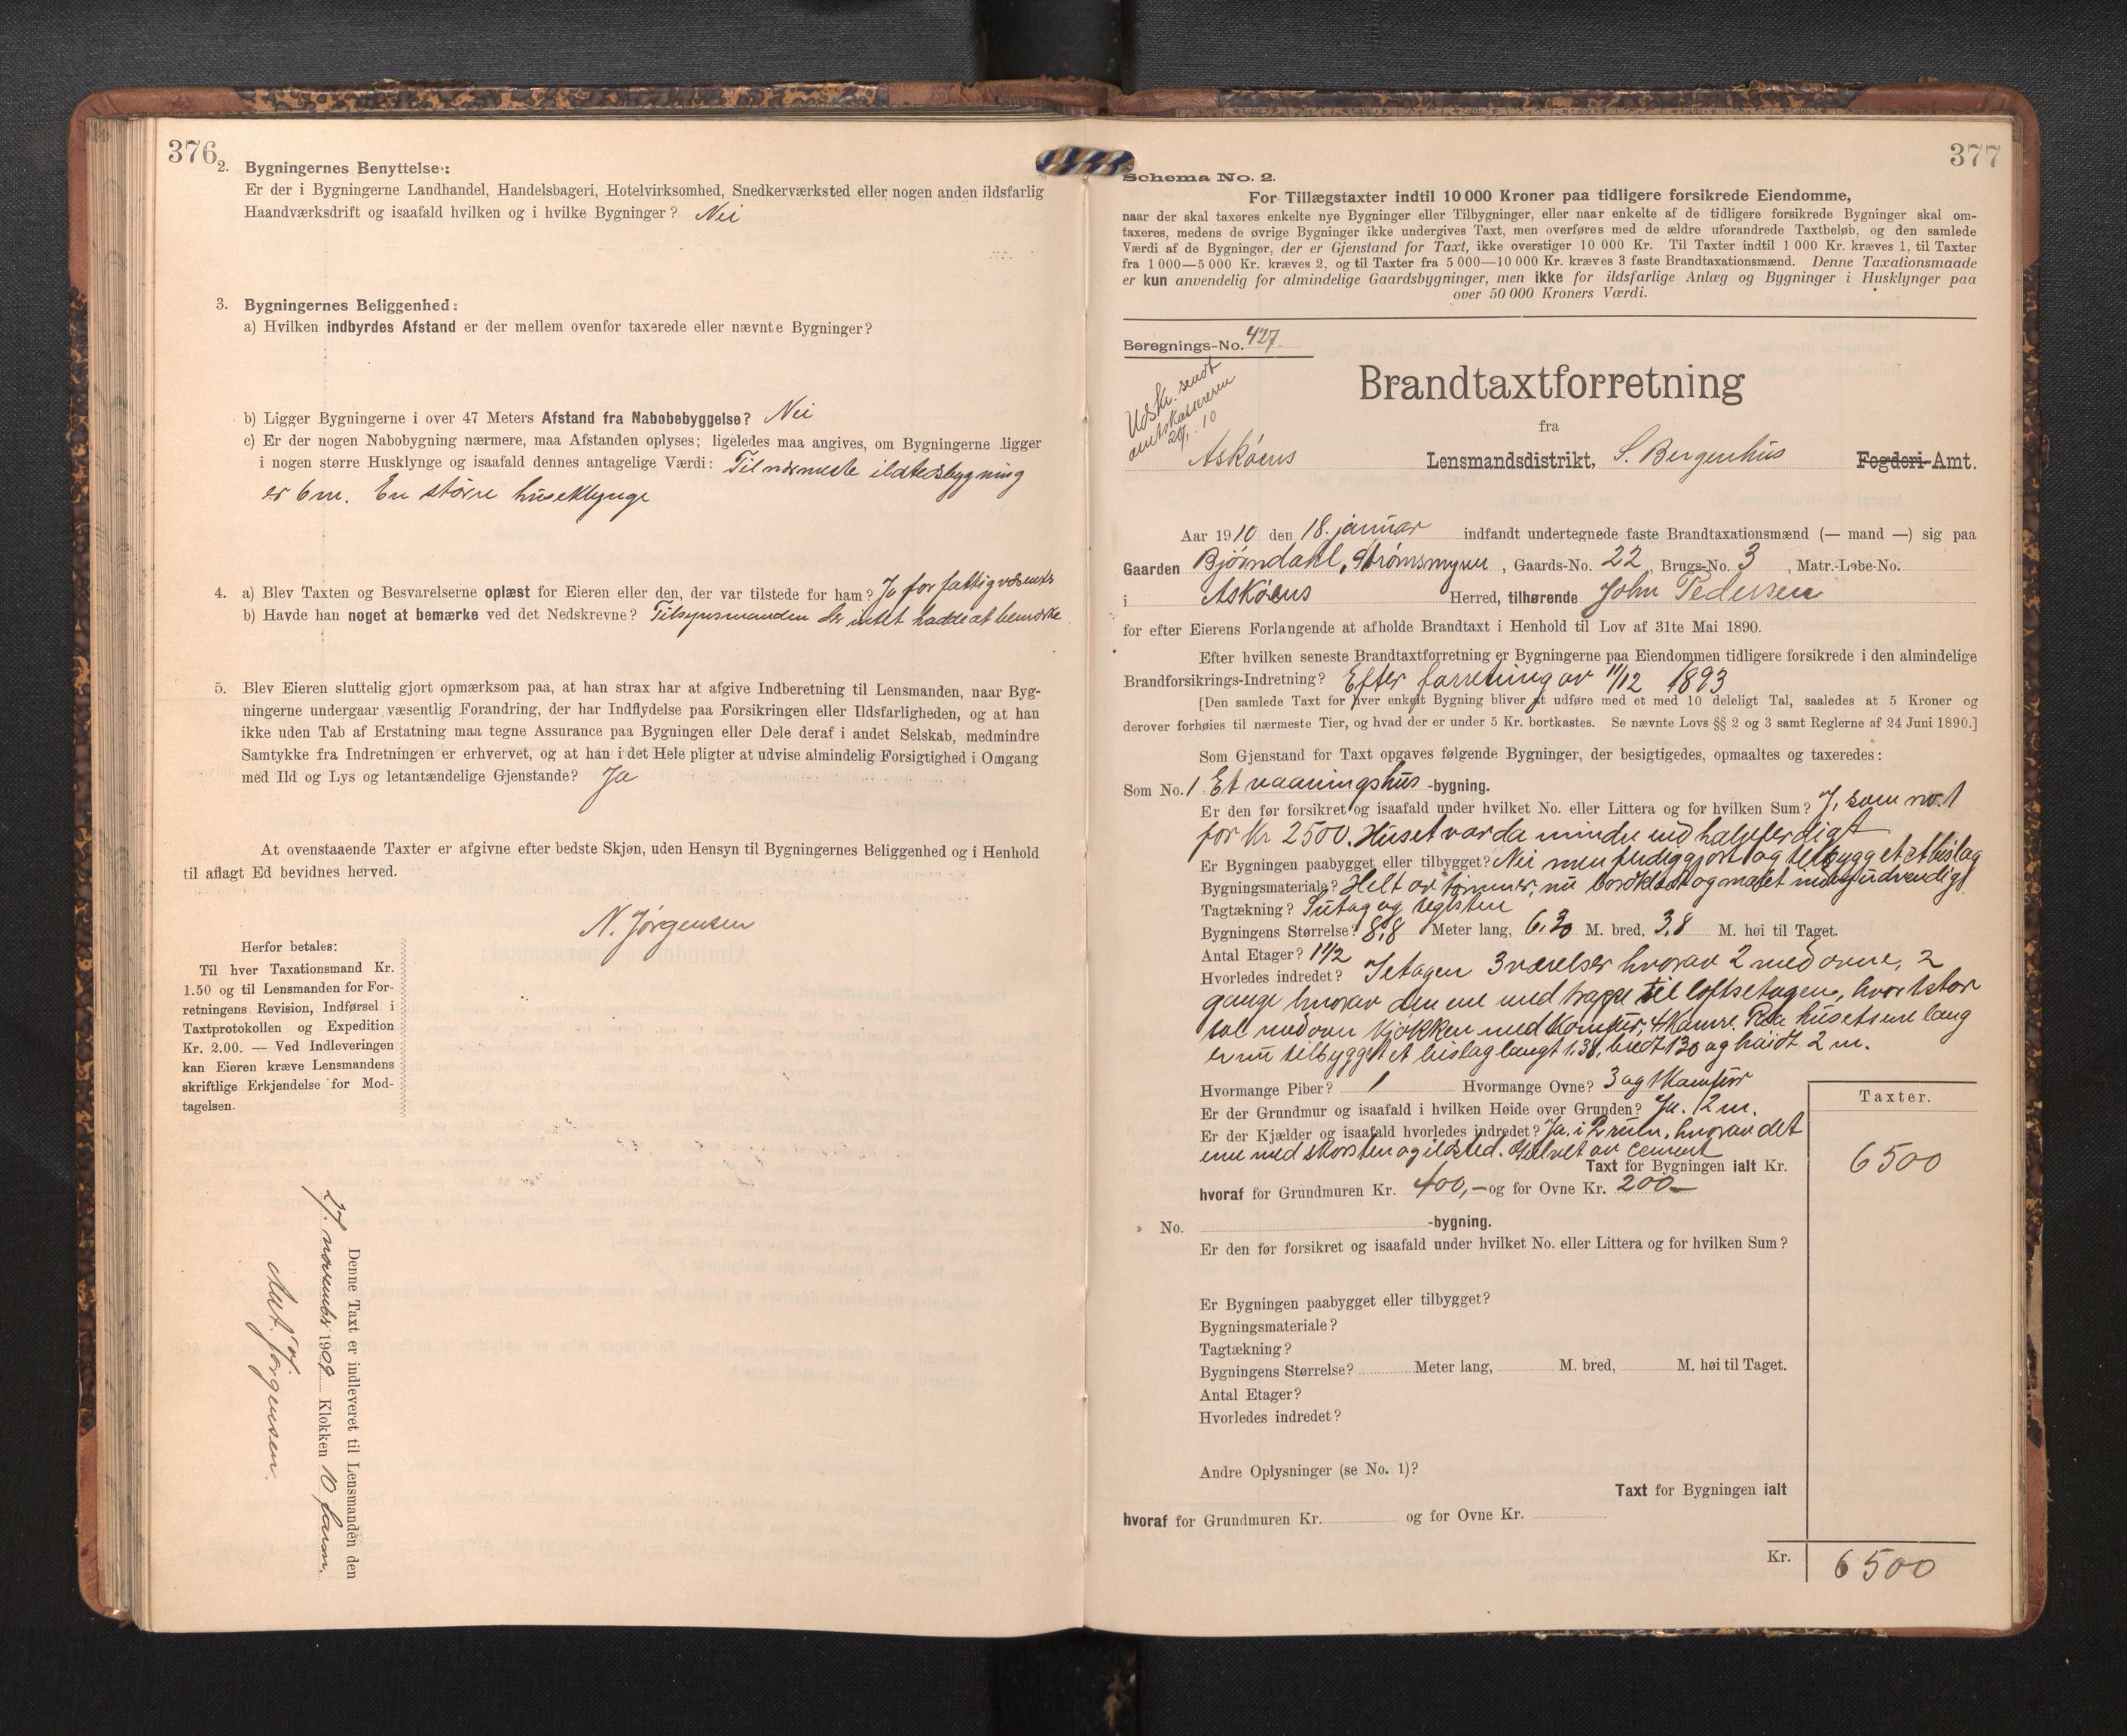 376
2. Bygningernes Benyttelse:
Er der i Bygningerne Landhandel, Handelsbageri, Hotelvirksomhed, Snedkerværksted eller nogen anden ildsfarlig
Haandværksdrift og isaafald hvilken og i hvilke Bygninger? Nei
3. Bygningernes Beliggenhed:
a) Hvilken indbyrdes Afstand er der mellem ovenfor taxerede eller nævnte Bygninger?
b) Ligger Bygningerne i over 47 Meters Afstand fra Nabobebyggelse? Nei
c) Er der nogen Nabobygning nærmere, maa Afstanden oplyses; ligeledes maa angives, om Bygningerne ligger
i nogen større Husklynge og isaafald dennes antagelige Værdi: Til nærmeste ildstedsbygning
er 6 m. En større huseklynge
4. a) Blev Taxten og Besvarelserne oplæst for Eieren eller den, der var tilstede for ham? Ja for fattigvæsenets
b) Havde han noget at bemærke ved det Nedskrevne? Tilsynsmanden der intet hadde at bemærke
5. Blev Eieren sluttelig gjort opmærksom paa, at han strax har at afgive Indberetning til Lensmanden, naar Byg-
ningerne undergaar væsentlig Forandring, der har Indflydelse paa Forsikringen eller Ildsfarligheden, og at han
ikke uden Tab af Erstatning maa tegne Assurance paa Bygningen eller Dele deraf i andet Selskab, medmindre
Samtykke fra Indretningen er erhvervet, og at han i det Hele pligter at udvise almindelig Forsigtighed i Omgang
med Ild og Lys og letantændelige Gjenstande? Ja
At ovenstaaende Taxter er afgivne efter bedste Skjøn, uden Hensyn til Bygningernes Beliggenhed og i Henhold
til aflagt Ed bevidnes herved.
N. Jørgensen
Herfor betales:
Til hver Taxationsmand Kr.
1.50 og til Lensmanden for For-
retningens Revision, Indførsel i
Taxtprotokollen og Expedition
Kr. 2.00. — Ved Indleveringen
kan Eieren kræve Lensmandens
skriftlige Erkjendelse for Mod-
tagelsen.
Denne Taxt er indleveret til Lensmanden den
27. november 1909 Klokken 10 form.
Jørgensen.
377
Schema No. 2.
For Tillægstaxter indtil 10 000 Kroner paa tidligere forsikrede Eiendomme,
naar der skal taxeres enkelte nye Bygninger eller Tilbygninger, eller naar enkelte af de tidligere forsikrede Bygninger skal om-
taxeres, medens de øvrige Bygninger ikke undergives Taxt, men overføres med de ældre uforandrede Taxtbeløb, og den samlede
Værdi af de Bygninger, der er Gjenstand for Taxt, ikke overstiger 10 000 Kr. Til Taxter indtil 1 000 Kr. kræves 1, til Taxter
fra 1 000—5 000 Kr. kræves 2, og til Taxter fra 5 000—10 000 Kr. kræves 3 faste Brandtaxationsmænd. Denne Taxationsmaade
er kun anvendelig for almindelige Gaardsbygninger, men ikke for ildsfarlige Anlæg og Bygninger i Husklynger paa
over 50 000 Kroners Værdi.
Beregnings-No. 427.
Udskr. sendt
amtskassereren
10
Brandtaxtforretning
fra
Askøens Lensmandsdistrikt, S. Bergenhus Fogderi-Amt.
Aar 1910 den 18. januar indfandt undertegnede faste Brandtaxationsmænd (— mand —) sig paa
Gaarden Bjørndahl, Strømsmyren, Gaards-No. 22, Brugs-No. 3, Matr.-Løbe-No.
i Askøens Herred, tilhørende John Pedersen
for efter Eierens Forlangende at afholde Brandtaxt i Henhold til Lov af 31te Mai 1890.
Efter hvilken seneste Brandtaxtforretning er Bygningerne paa Eiendommen tidligere forsikrede i den almindelige
Brandforsikrings-Indretning? Efter forretning av 11/12 1893
[Den samlede Taxt for hver enkelt Bygning bliver at udføre med et med 10 deleligt Tal, saaledes at 5 Kroner og
derover forhøies til nærmeste Tier, og hvad der er under 5 Kr. bortkastes. Se nævnte Lovs §§ 2 og 3 samt Reglerne af 24 Juni 1890.]
Som Gjenstand for Taxt opgaves følgende Bygninger, der besigtigedes, opmaaltes og taxeredes:
Som No. 1 Et vaaningshus -bygning.
Er den før forsikret og isaafald under hvilket No. eller Littera og for hvilken Sum? J, som no. 1
for Kr 2500. Huset var da mindre end halvferdigt
Er Bygningen paabygget eller tilbygget? Nei men ferdiggjort og tilbygget et bislag
Bygningsmateriale? Helt av tømmer, nu bordklædt og malet ind og udvendig
Tagtækning? Sutag og teglsten
Bygningens Størrelse? 8,8 Meter lang, 6,30 M. bred, 3,8 M. høi til Taget.
Antal Etager? 1 1/2
Hvorledes indredet? I etagen 3 værelser hvorav 2 med ovne, 2
gange hvorav den ene med trappe til loftsetagen, hvor 1 stor
sal med ovn kjøkken med komfur, 4 kamre. Paa husets ene lang
er nu tilbygget et bislag langt 1.38, bredt 1.30 og høidt 2 m.
Hvormange Piber? 1 Hvormange Ovne? 3 og 1 Komfur
Er der Grundmur og isaafald i hvilken Høide over Grunden? Ja. 1,2 m.
Er der Kjælder og isaafald hvorledes indredet? Ja. i 2 rum, hvorav det
ene med skorsten og ildsted. Gulvet av cement
Taxter.
Taxt for Bygningen ialt Kr. 6500
hvoraf for Grundmuren Kr. 400,- og for Ovne Kr. 200-
» No. -bygning.
Er den før forsikret og isaafald under hvilket No. eller Littera og for hvilken Sum?
Er Bygningen paabygget eller tilbygget?
Bygningsmateriale?
Tagtækning?
Bygningens Størrelse? Meter lang, M. bred, M. høi til Taget.
Antal Etager?
Hvorledes indredet?
Andre Oplysninger (se No. 1)?
Taxt for Bygningen ialt
hvoraf for Grundmuren Kr. og for Ovne Kr.
Kr. 6500